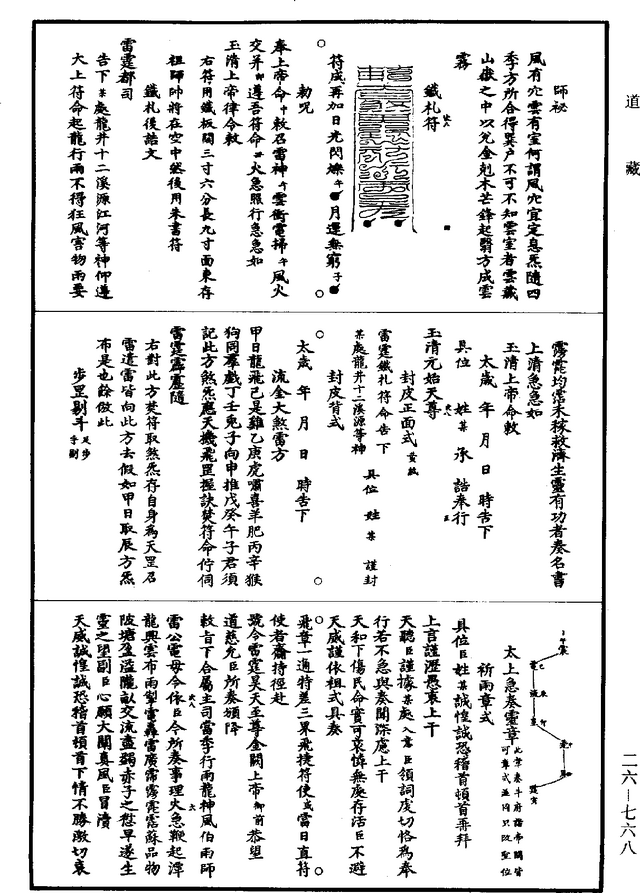 道藏
師祕
風有穴雲有室何謂風穴宜定息炁隨四
季方所合得巽户不可不知雲室者雲藏
山嶽之中以兌金剋木芒鋒起翳方成雲
霧
鐵札符
符成再加日光閃爍午月運無窮子
勑呪
奉上帝命敕召雷神午雲衝電掃午風火
交并卯遵吾符命火急照行急急如
玉清上帝律令敕
右符用鐵板闊三寸六分長九寸面東存
祖師帥將在空中然後用朱書符
鐵札後誥文
雷霆都司
告下某處龍井十二溪源江河等神仰遵
大上符命起龍行雨不得狂風害物雨要
霶霈均霑禾稼救濟生靈有功者奏名書
上清急急如
玉清上帝命敕
太歲年月日時告下
具位姓某承誥奉行
玉清元始天尊
封皮正面式黃紙
雷霆鐵札符命告下
某處龍井十二溪源等神
具位姓某謹封
封皮背式
太歲年月日時告下
流金大煞雷方
甲日龍飛己是雞乙庚虎嘯喜羊肥丙辛猴
狗同羣戲丁壬兔子向申推戊癸午子君須
記此方煞炁應天機飛罡握訣焚符命佇伺
雷霆霹靂隨
右對此方焚符取煞炁存自身為天罡召
雷遣雷皆向此方去假如甲日取辰方炁
布是也餘倣此
步罡剔斗足步手剔
太上急奏靈章此常奏斗府諸帝闕皆可章式並同只改聖位
祈雨章式
具位臣姓某誠惶誠恐稽首頓首再拜
上言謹瀝愚衷上干
天聽臣謹據某處入意臣領詞虔切恪為奉
行若不急與奏聞深慮上干
天和下傷民命實可哀憐無處存活臣不避
天威謹依祖式具奏
飛章一通特差三界飛捷符使或當日直符
使者齎持徑赴
號令雷霆昊天王尊金闕上帝御前恭望
道慈允臣所奏頒降
敕旨下合屬主司雷季行雨龍神風伯雨師
雷公電母令依臣今所奏事理火急鞭起潭
龍興雲布雨掣電轟雷廣霈霶霶霑蘇品物
陂塘盈溢隴畝交流盡蠲赤子之愁早遂生
靈之望副臣心願大闡真風臣冒瀆
天威誠惶誠恐稽首頓首下情不勝激切衷
二六—七六八